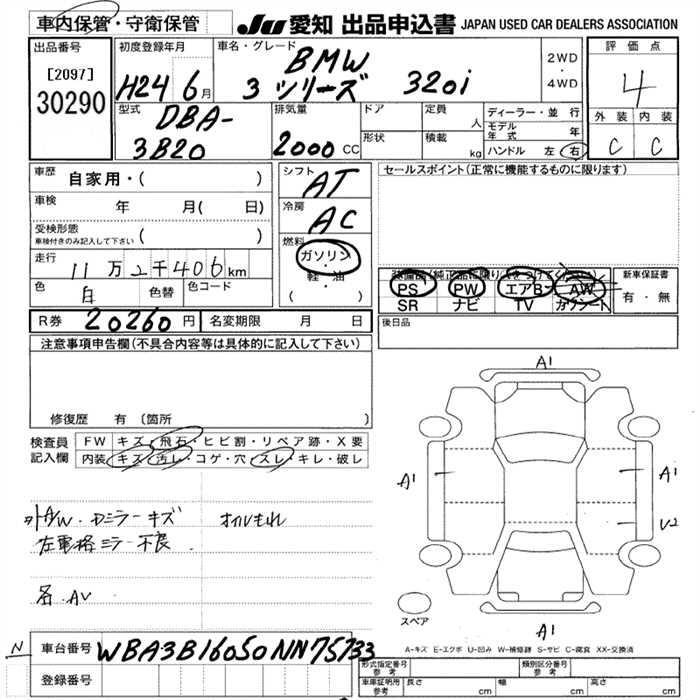 車内保管・守衛保管 JU 愛知 出品申込書 JAPAN USED CAR DEALERS ASSOCIATION
出品番号 初度登録年月 車名・グレード 2WD・4WD 評価点
[2097] H24 6月 BMW 4
30290 3 シリーズ 320i
型式 排気量 ドア 定員 人 ディーラー・並行 外装 内装
DBA- モデル年式 年
3B20 2000cc 形状 積載 kg ハンドル 左 右 C C
車歴 自家用・( ) シフト AT セールスポイント(正常に機能するものに限ります)
車検 年 月( 日) 冷房 AC
受検形態 ( )
車検付きのみ記入して下さい
燃料 ガソリン・軽・油 ( )
走行 11万2千406km
色 白 色替 色コード
PS PW エアB AW 新車保証書
SR ナビ TV カワシート 有・無
R券 20260円 名変期限 月 日 後日品
注意事項申告欄(不具合内容等は具体的に記入して下さい)
修復歴 有(箇所 )
検査員記入欄 FW キズ・飛石・ヒビ割・リペア跡・X要
内装 キズ・汚レ・コゲ・穴・スレ・キレ・破レ
A1
A1 A1
U2
A/W・Dミラーキズ オイルもれ
左電格ミラー不良
スペア
A1
A-キズ E-エクボ U-凹み W-補修跡 S-サビ C-腐食 XX-交換済
N 車台番号 WBA3B16050NN75733
登録番号
形式指定番号 参考 類別区分番号 参考
車庫証明用 参考 長さ cm 幅 cm 高さ cm